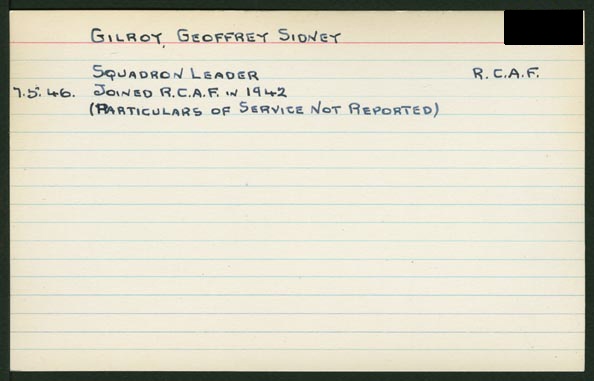 GILROY, GEOFFREY SIDNEY
SQUADRON LEADER R.C.A.F.
7.5.46. JOINED R.C.A.F. IN 1942
(PARTICULARS OF SERVICE NOT REPORTED)